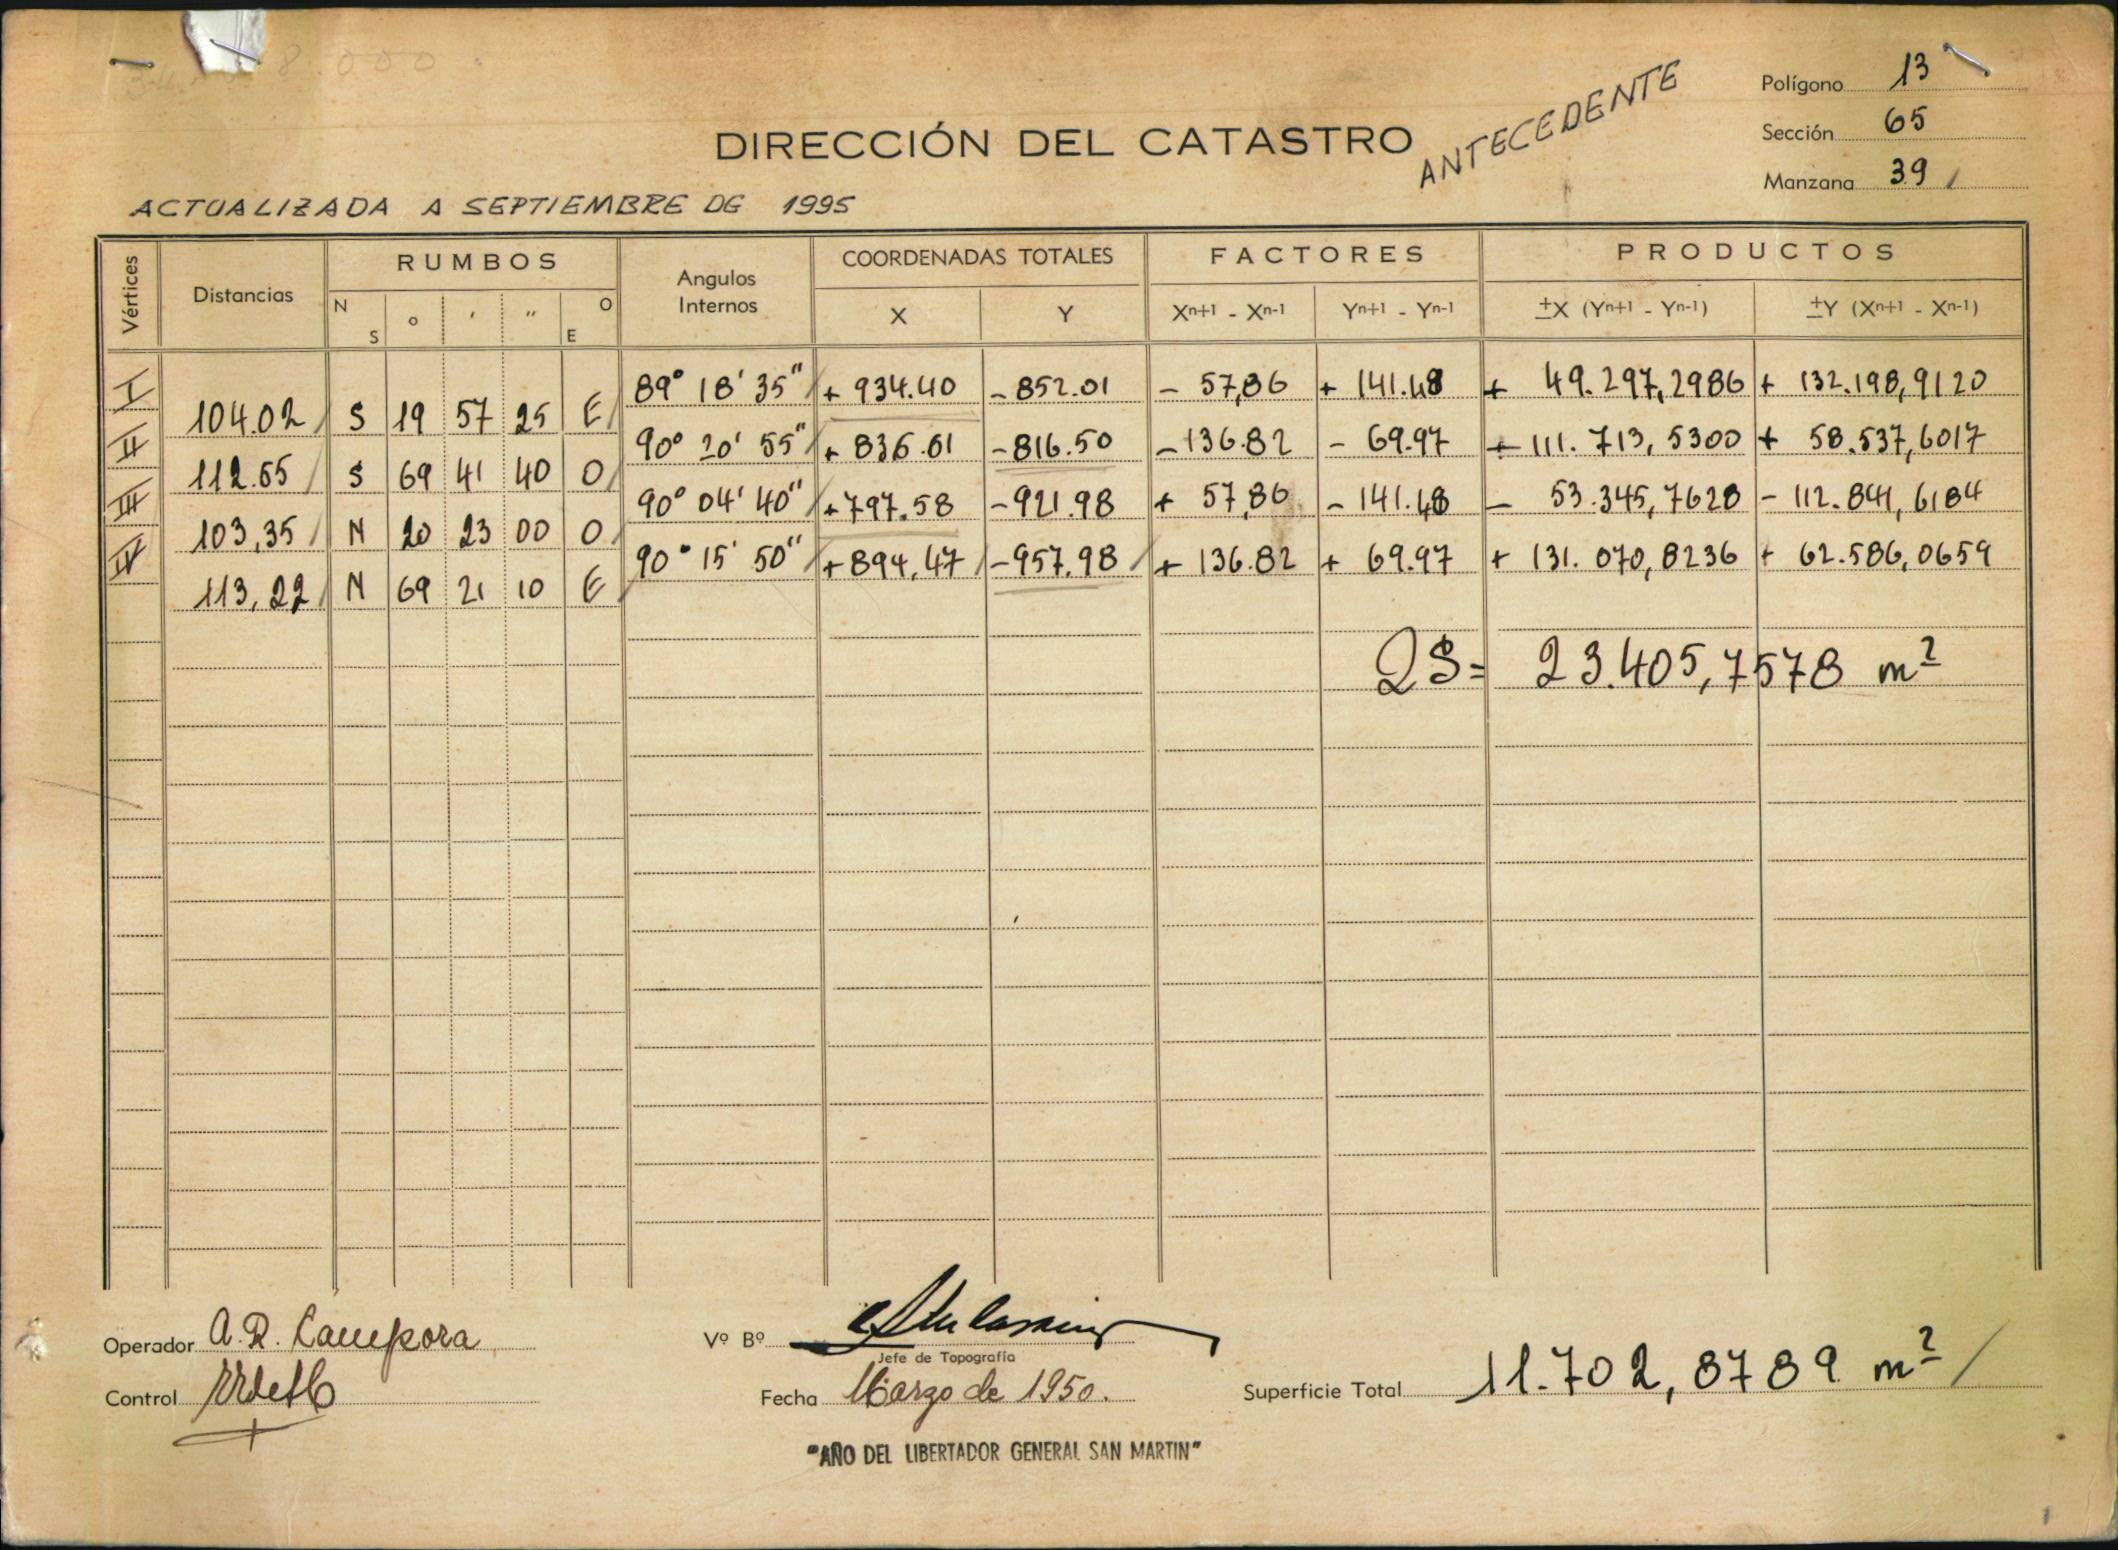 34. 8.000.
DIRECCIÓN DEL CATASTRO
ANTECEDENTE
Polígono 13
Sección 65
Manzana 39
ACTUALIZADA A SEPTIEMBRE DE 1995
Vértices Distancias RUMBOS Angulos Internos COORDENADAS TOTALES FACTORES PRODUCTOS
N S o ' " O E X Y Xn+1 - Xn-1 Yn+1 - Yn-1 ±X (Yn+1 - Yn-1) ±Y (Xn+1 - Xn-1)
I 89° 18' 35" + 934.40 - 852.01 - 57,86 + 141.48 + 49.297,2986 + 132.198,9120
104.02 S 19 57 25 E
II 90° 20' 55" + 836.61 - 816.50 - 136.82 - 69.97 + 111.713,5300 + 58.537,6017
112.55 S 69 41 40 O
III 90° 04' 40" + 797.58 - 921.98 + 57,86 - 141.48 - 53.345,7628 - 112.841,6184
103,35 N 20 23 00 O
IV 90° 15' 50" + 894,47 - 957,98 + 136.82 + 69.97 + 131.070,8236 + 62.586,0659
113,22 N 69 21 10 E
2S = 23.405,7578 m²
Operador A. R. Campora
Vº Bº
Jefe de Topografía
Control
Fecha Marzo de 1950.
Superficie Total 11.702,8789 m²
"AÑO DEL LIBERTADOR GENERAL SAN MARTIN"